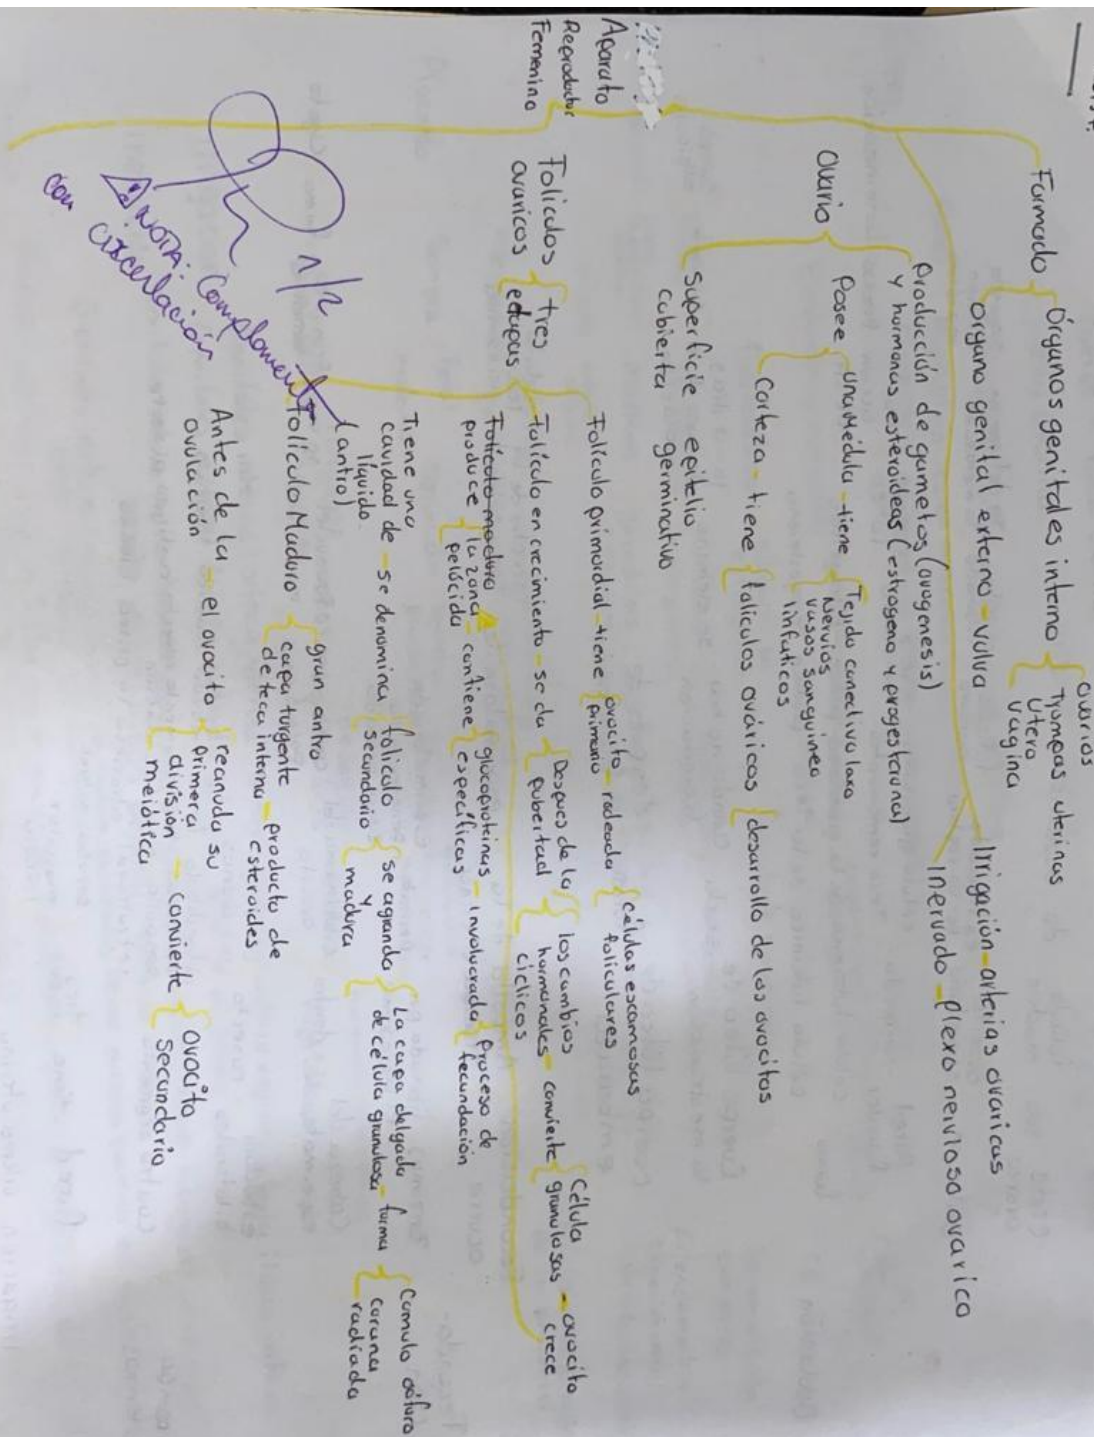 Aparato
Reproductor
Femenino
Formado
Órganos genitales interno
Ovarios
Trompas uterinas
Utero
Vagina
organo genital externo - vulva
Irrigación - arterias ovaricas
Inervado - plexo nervioso ovarico
Ovario
Producción de gametos (ovogenesis)
y hormonas esteroideas (estrogeno y progesterona)
Posee
una Médula - tiene
Tejido conectivo laxo
Nervios
vasos sanguineo
linfaticos
Corteza - tiene
foliculos ováricos
desarrollo de los ovocitos
Superficie
cubierta
epitelio
germinativo
Foliculos
ovaricos
tres
etapas
Folículo primordial - tiene
ovocito
primario
- rodeada
células escamosas
foliculares
Folículo en crecimiento - se da
Despues de la
pubertad
los cambios
hormonales - convierte
ciclicos
Célula
granulosas - ovocito
crece
Folículo maduro
produce
la zona
pelúcida
- contiene
glucoproteinas
específicas
- Involucrada
proceso de
fecundación
Tiene una
cavidad de - se denomina
líquido
(antro)
folículo
secundario
se agranda
y
madura
La capa delgada
de célula granulosa - forma
Cumulo oóforo
corona
radiada
Folículo Maduro
gran antro
capa turgente
de teca interna - producto de
esteroides
Antes de la
ovulación
- el ovocito
reanuda su
primera
división - convierte
meiótica
Ovocito
secundario
1/2
NOTA: Complementar
con
circulación